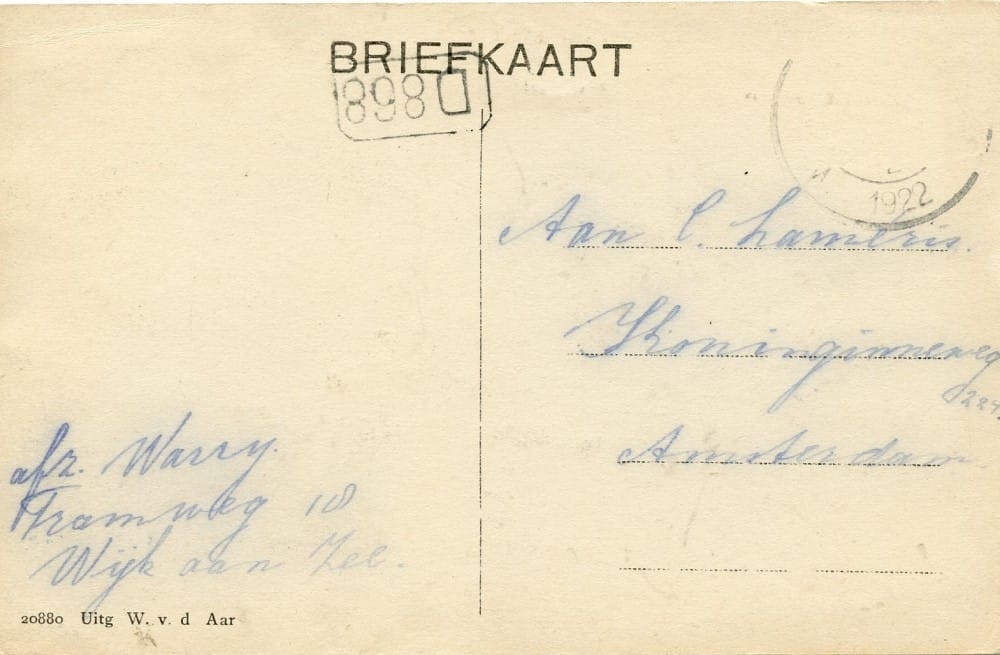 BRIEFKAART
898 D
1922
Aan C. Lameris.
Koninginneweg
Amsterdam.
afz. Warry.
Tramweg 18
Wijk aan Zee.
20880 Uitg W. v. d Aar